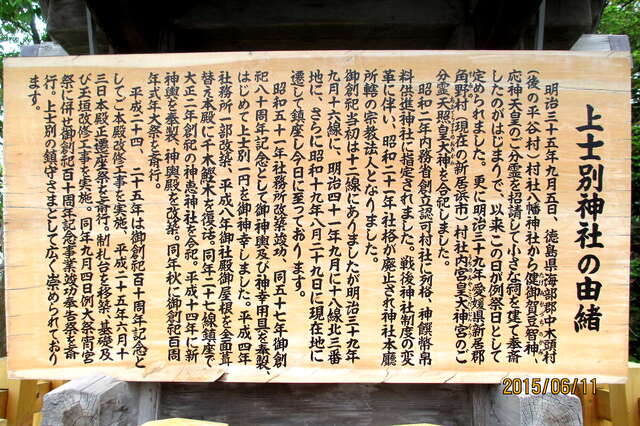 上士別神社の由緒
明治三十五年九月五日、徳島県海部郡中木頭村
(後の平谷村)村社八幡神社から健御賀豆智神、
応神天皇のご分霊を招請して小さな祠を建て奉斎
したのがはじまりで、以来この日が例祭日として
定められました。更に明治三十九年愛媛県新居郡
角野村(現在の新居浜市)村社内宮皇大神宮のご
分霊天照皇大神を合祀しました。
昭和二年内務省創立認可村社に列格、神饌幣帛
料供進神社に指定されました。戦後神社制度の変
革に伴い、昭和二十一年社格が廃止され神社本庁
所轄の宗教法人となりました。
御創祀当初は十二線にありましたが明治三十九年
九月十六線に、明治四十一年九月に十八線北三番
地に、さらに昭和十九年八月二十九日に現在地に
遷して鎮座し今日に至っております。
昭和五十一年社務所改築竣功、同五十七年御創
祀八十周年記念として御神輿及び神幸用具を奏製
はじめて上士別一円を御神幸しました。平成四年
社務所一部改築、平成八年御社殿御屋根を全面葺
替え本殿に千木鰹木を復活。同年二十七線鎮座で
大正二年創祀の神恵神社を合祀。平成十四年に新
神輿を奏製、神輿殿を改築。同年秋に御創祀百周
年式年大祭を斎行。
平成二十四、二十五年は御創祀百十周年記念と
してご本殿改修工事を実施。平成二十五年六月十
三日本殿正遷座祭を斎行。制札台を移築、基礎及
び玉垣改修工事を実施。同年九月四日例大祭宵宮
祭に併せ御創祀百十周年記念事業竣功奉告祭を斎
行。上士別の鎮守さまとして広く崇められており
ます。
2015/06/11